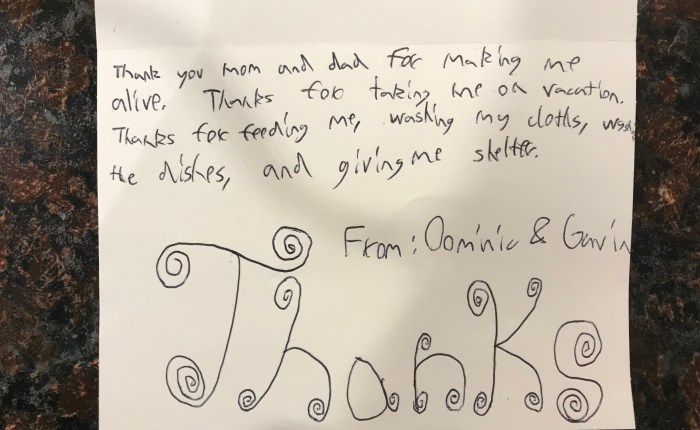 Thank you mom and dad for making me
alive. Thanks for taking me on vacation.
Thanks for feeding me, washing my cloths, wash
the dishes, and giving me shelter.
From: Dominic & Gavin
Thanks